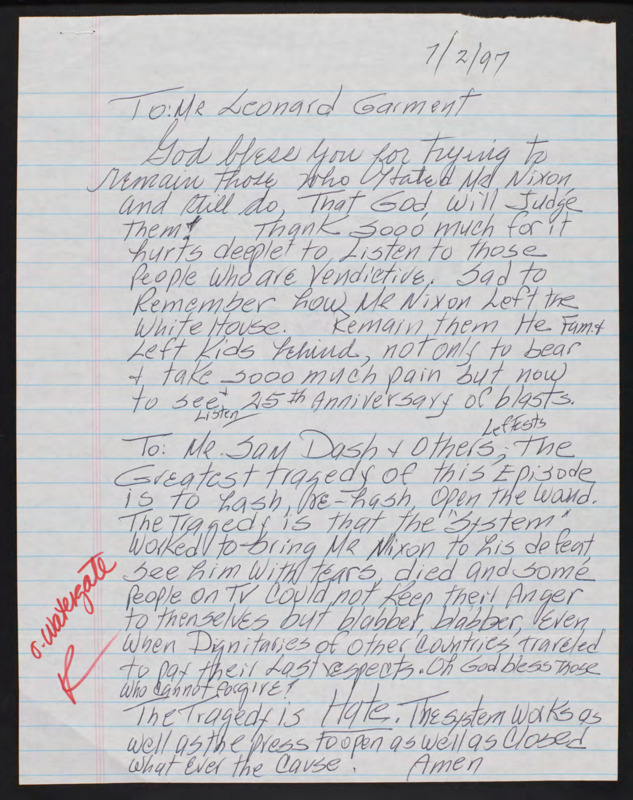 7/2/97
To: Mr Leonard Garment
God bless you for trying to
remain those who Hated Mr Nixon
and still do, That God will Judge
them! Thank sooo much for it
hurts deeple to Listen to those
People who are vendictive. Sad to
Remember how Mr Nixon Left the
White House. Remain them He Fam. +
Left Kids behind, not only to bear
+ take sooo much pain but now
to see + Listen 25th Anniversary of blasts.
To: Mr. Sam Dash + Others, Leftests; The
Greatest tragedy of this Episode
is to hash, re-hash, open the wond.
The Tragedy is that the "System"
worked to bring Mr Nixon to his defeat,
see him with tears, died and some
People on TV could not keep their Anger
to themselves but blabber, blabber, Even
when Dignitaries of other countries traveled
to pay their Last respects. Oh God bless those
who cannot forgive!
The Tragedy is Hate. The system works as
well as the press to open as well as closed
what ever the cause. Amen
O. Watergate
R